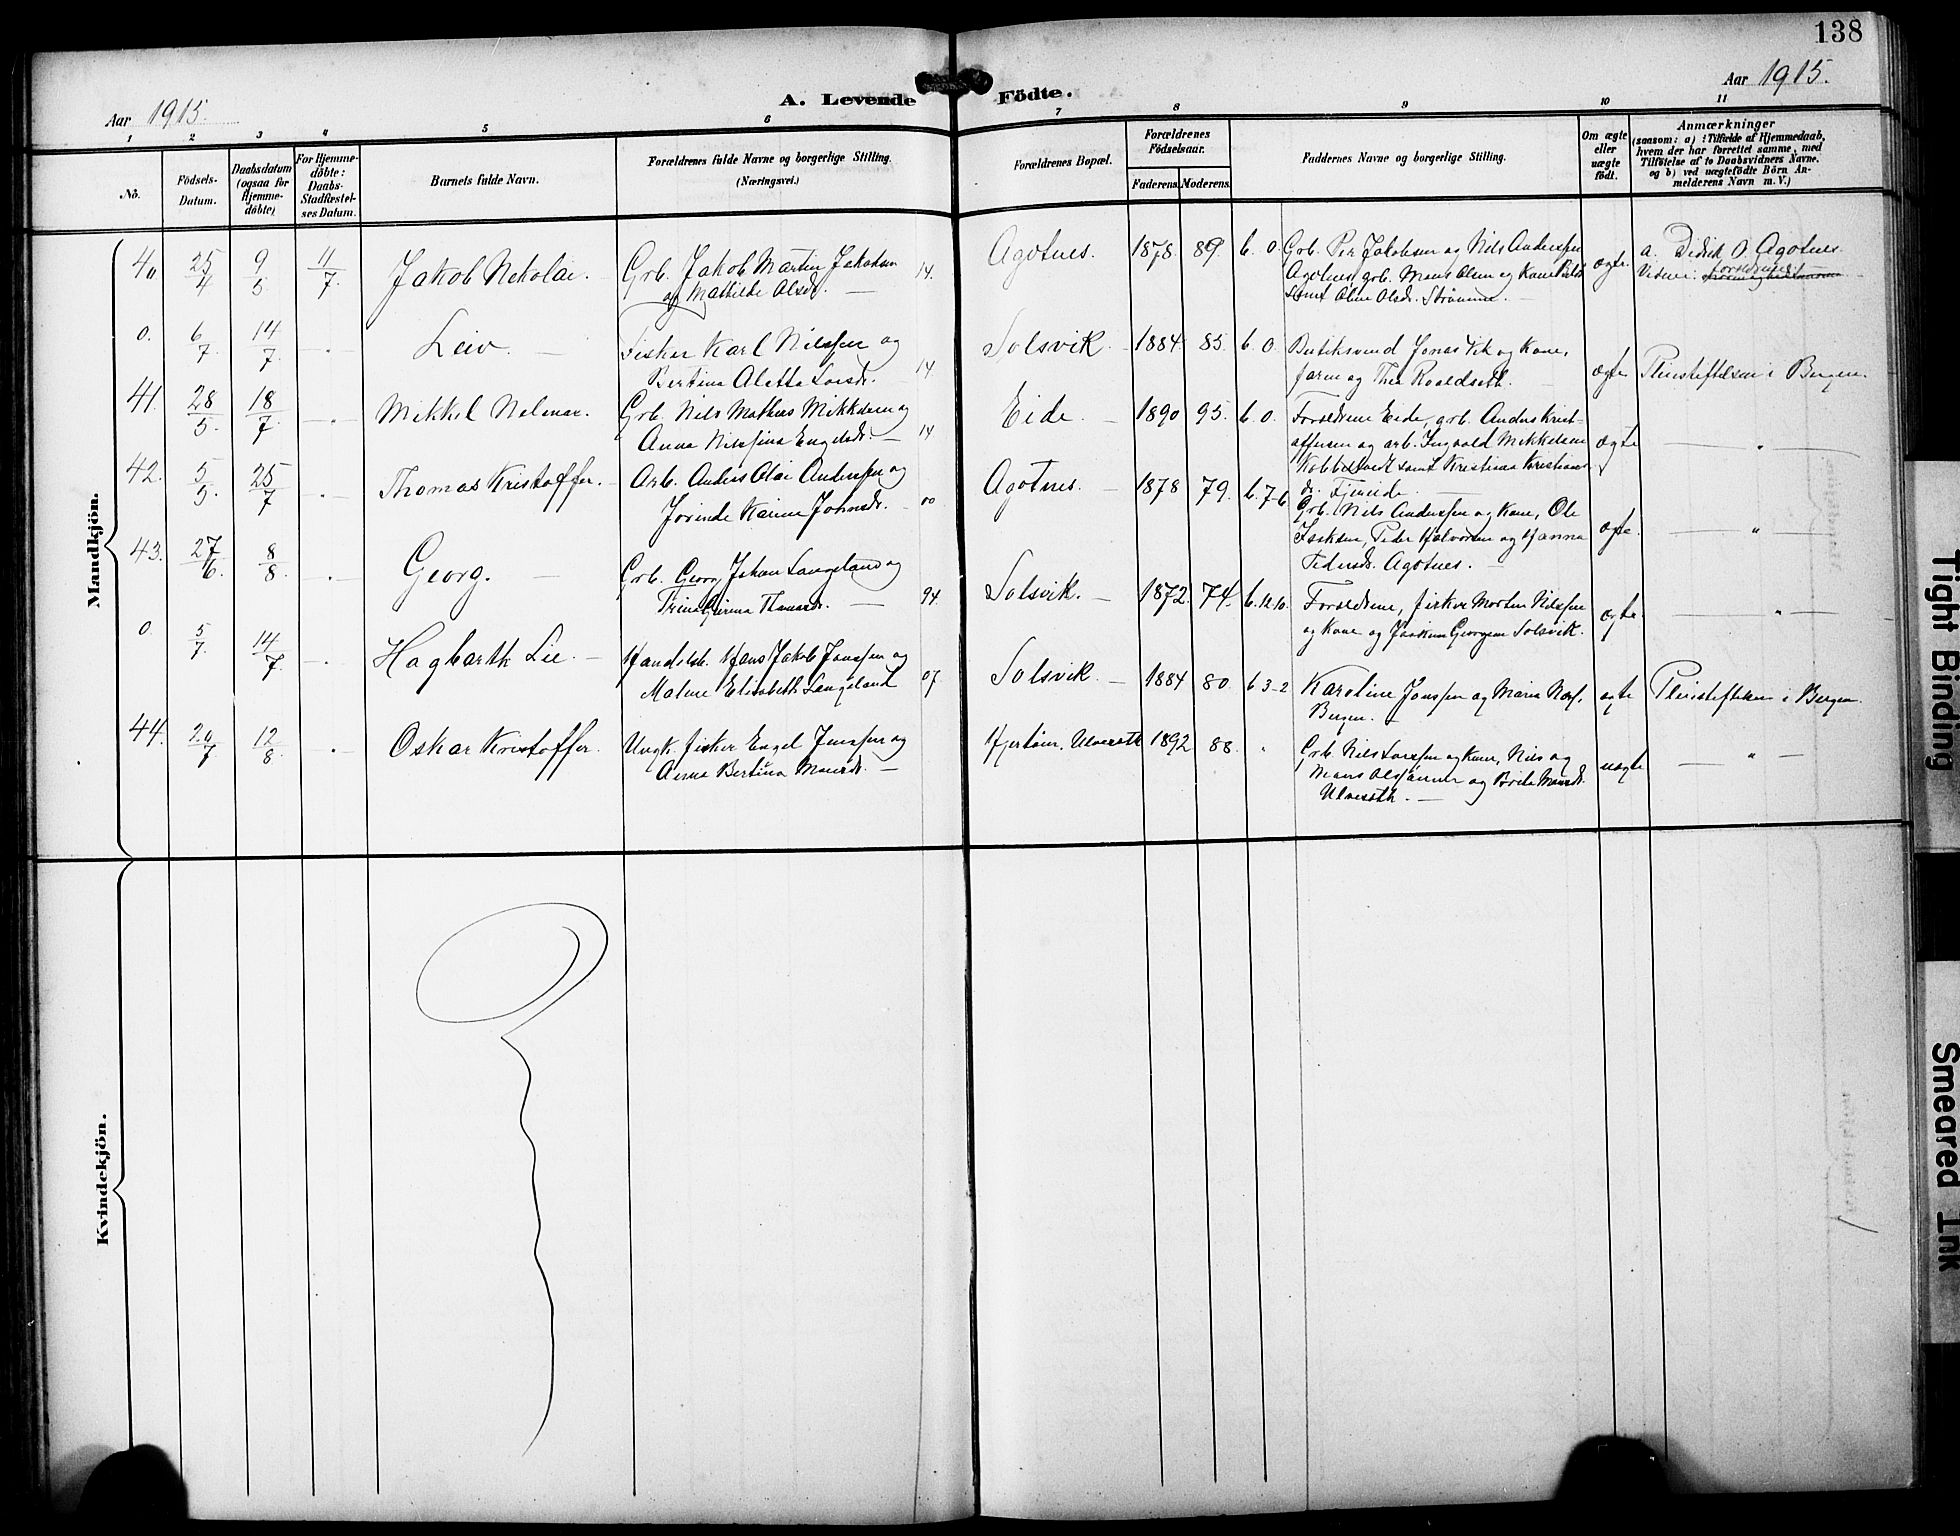 138
Aar 1915.
A. Levende Födte.
Aar 1915.
1 2 3 4 5 6 7 8 9 10 11
No.
Födsels-Datum.
Daabsdatum (ogsaa for Hjemme-döbte)
For Hjemme-döbte: Daabs-Stadfæstel-ses Datum.
Barnets fulde Navn.
Forældrenes fulde Navne og borgerlige Stilling.
(Næringsvei.)
Forældrenes Bopæl.
Forældrenes Födselsaar.
Faderens. Moderens.
Faddernes Navne og borgerlige Stilling.
Om ægte eller uægte födt.
Anmærkninger
(saasom: a) i Tilfælde af Hjemmedaab,
hvem der har forrettet samme, med
Tilföielse af to Daabsvidners Navne.
og b) ved uægtefödte Börn An-
melderens Navn m. V.)
Mandkjön.
40 25/4 9/5 11/7 Jakob Nikolai. Grb. Jakob Martin Jakobsen 14.
og Mathilde Olsdr.
Agotnes. 1878. 89. 6. 0. Grb. Per Jakobsen og Nils Anderssen
Agotnes, grb. Mons Olsen og Kone
samt Oline Olsdr. Strömme.
ægte a. Didrik O. Agotnes
Vidner: Forældrene
0. 6/7 14/7 Leiv. Fisker Karl Nilssen og
Bertina Aletta Larsdr. 14
Solsvik. 1884. 85. 6. 0. Butiksvend Jonas Vik og Kone,
Farm og Thea Roaldseth.
ægte Pleiestiftelsen i Bergen.
41. 28/5. 18/7. Mikkel Nelmar. Grb. Nils Mathias Mikkelsen og
Anna Nilssina Engelsdr. 14
Eide. 1890 95. 6. 0. Forældrene Eide, grb. Anders Krist-
offersen og arb. Ingvald Mikkelsen
Kobbeltvedt samt Kristina Kristians
dr. Fjereide.
ægte "
42. 5/5. 25/7 Thomas Kristoffer. Arb. Anders Olai Anderssen og
Jorinde Karina Johnsdr. 00
Agotnes. 1878 79. 6. 7-6 Grb. Nils Anderssen og Kone, Ole
Isaksen, Peder Halvorsen og Hanna
Pedersdr. Agotnes.
ægte. "
43. 27/6. 8/8. Georg. Grb. Georg Johan Langeland og
94.
Solsvik. 1872. 74. 6. 12. 10. Forældrene, fisker Morten Nilssen
og Kone og Joakim Georgsen Solsvik.
ægte. "
0. 5/7. 14/7 Hagbarth Lie. Handelsb. Hans Jakob Janssen og
Malene Elisabeth Langeland 07
Solsvik. 1884 80. 6 3-2 Karoline Jonssen og Maria
Bergen.
ægte Pleiestiftelsen i Bergen.
44. 20/7 12/8. Oskar Kristoffer. Ungk. fisker Engel Jenssen og
Anna Bertina Monsdr.
Ulveseth 1892 88. " Grb. Nils Larssen og Kone, Nils og
Mons og Brita Monsdr.
Ulveseth.
uægte "
Kvindekjön.
Tight Binding
Smeared Ink